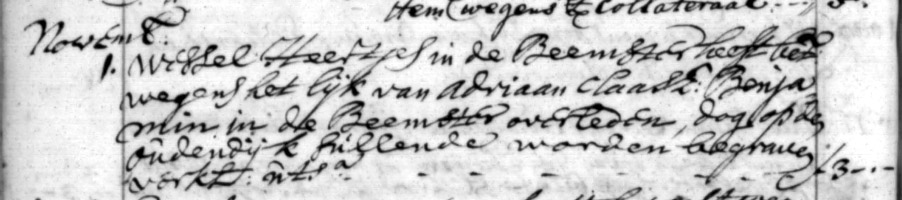 Item wegens 't Collateraal - - 3 -
Novemb:
1. Wessel Heertjes in de Beemster heeft bet:
wegens het lijk van Adriaan Claasz: Benja
min in de Beemster overleden, dog op den
oudendijk sullende worden begraven
verkl: uts: - - - - - - 3 - -